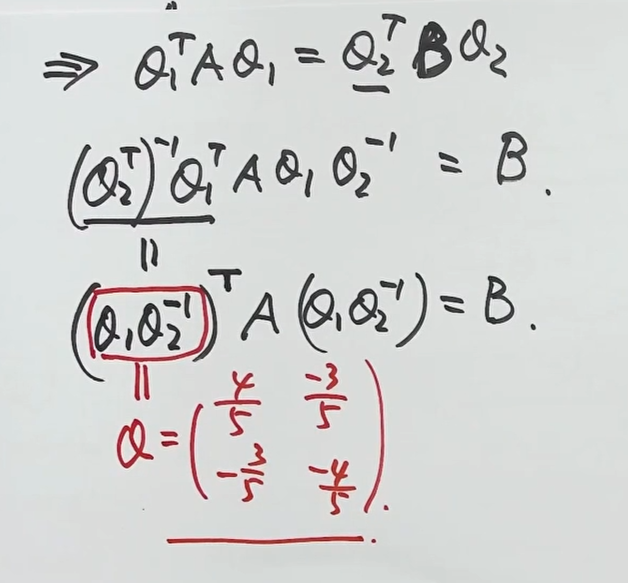 ⇒ Q₁ᵀAQ₁ = Q₂ᵀBQ₂
(Q₂ᵀ)⁻¹Q₁ᵀAQ₁Q₂⁻¹ = B.
||
(Q₁Q₂⁻¹)ᵀA(Q₁Q₂⁻¹) = B.
||
Q = (4/5 -3/5
-3/5 -4/5).